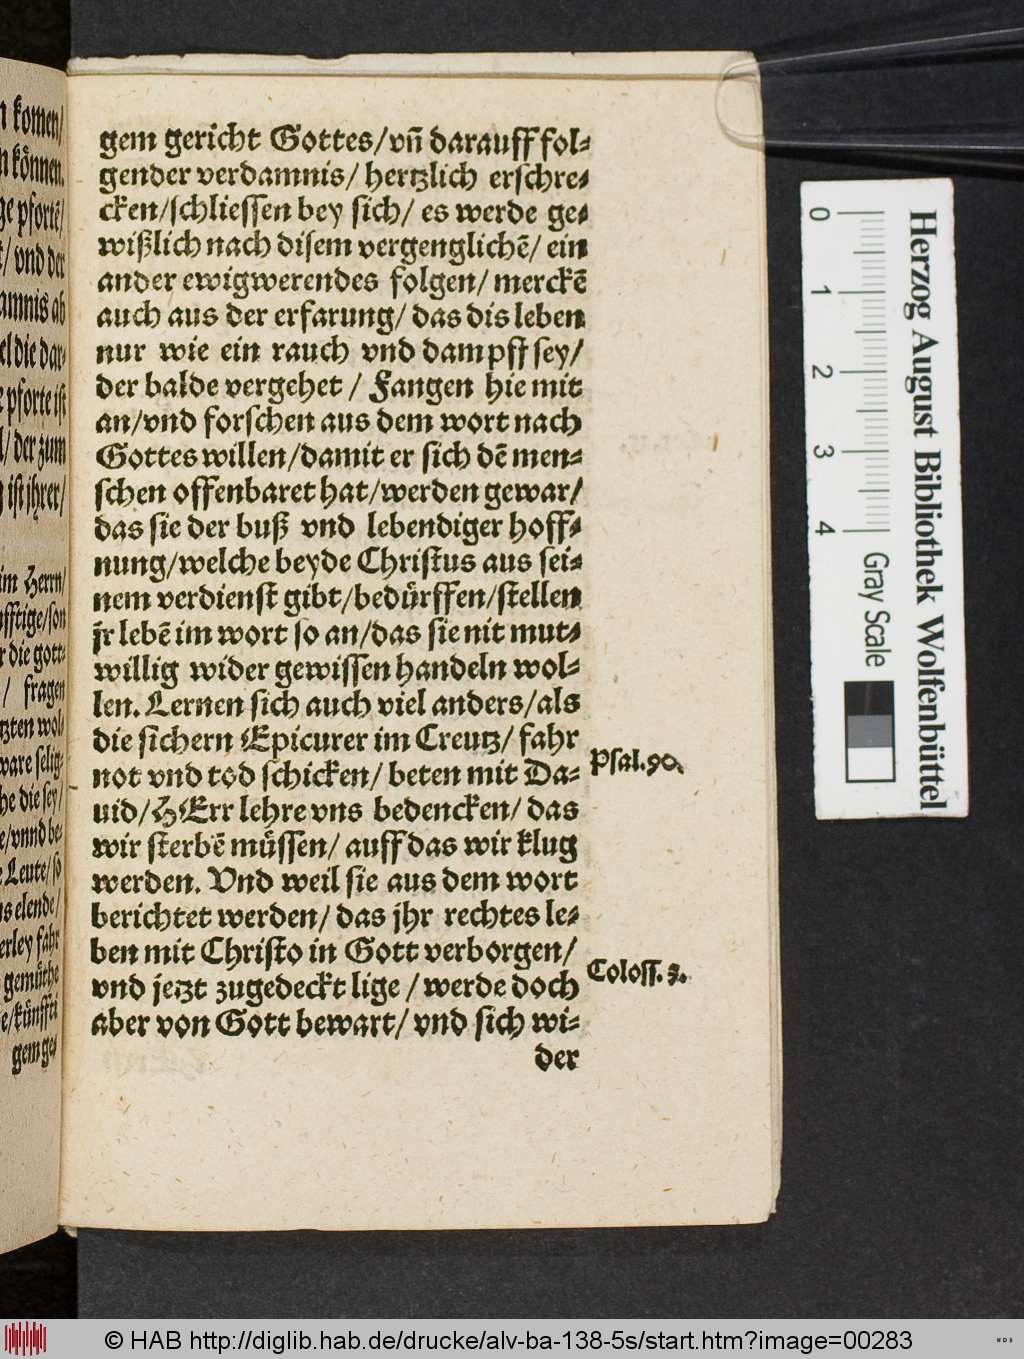 n komen/
n können.
ge pfortē/
/ vnd der
amnis ab
el die dar-
e pforte ist
l/ der zum
g ist jhrer/
im Herrn/
ufftige/son
r die gott-
/ fragen
tzten wol-
ware selig-
he die sey/
e/vnnd be-
e Leute/ so
us elende/
erley fahr
gemüthe
e/künffti
gem ge-
gem gericht Gottes/vñ darauff fol-
gender verdamnis/ hertzlich erschre-
cken/schliessen bey sich/ es werde ge-
wißlich nach disem vergenglichē/ ein
ander ewigwerendes folgen/ merckē
auch aus der erfarung/ das dis leben
nur wie ein rauch vnd dampff sey/
der balde vergehet / Fangen hie mit
an/vnd forschen aus dem wort nach
Gottes willen/damit er sich dē men-
schen offenbaret hat/werden gewar/
das sie der buß vnd lebendiger hoff-
nung/welche beyde Christus aus sei-
nem verdienst gibt/bedürffen/stellen
jr lebē im wort so an/das sie nit mut-
willig wider gewissen handeln wol-
len. Lernen sich auch viel anders/als
die sichern Epicurer im Creutz/ fahr
not vnd tod schicken/ beten mit Da-
uid/HErr lehre vns bedencken/ das
wir sterbē müssen/ auff das wir klug
werden. Vnd weil sie aus dem wort
berichtet werden/ das jhr rechtes le-
ben mit Christo in Gott verborgen/
vnd jetzt zugedeckt lige / werde doch
aber von Gott bewart/ vnd sich wi-
der
Psal.90.
Coloss. 3.
0 1 2 3 4
Gray Scale
Herzog August Bibliothek Wolfenbüttel
© HAB http://diglib.hab.de/drucke/alv-ba-138-5s/start.htm?image=00283